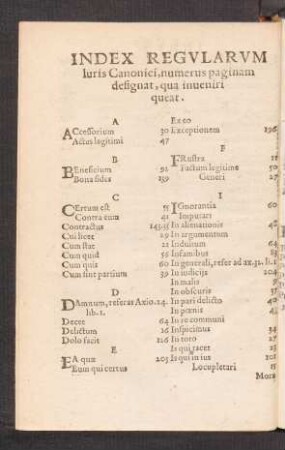 INDEX REGVLARVM
Iuris Canonici, numerus paginam
designat, qua inueniri
queat.
A
ACcessorium 30
Actus legitimi 47
B
BEneficium 92
Bona fides 139
C
CErtum est 55
Contra eum 41
Contractus
Cui licet 29
Cum stat 21
Cum quid 56
Cum quis 60
Cum sint partium 39
D
DAmnum, referas Axio. 24.
lib. 1.
Decet 64
Delictum 26
Dolo facit 116
E
EA quæ 205
Eum qui certus
Ex eo
Exceptionem 196
F
FRustra 11
Factum legitime 50
Generi 27
I
IGnorantia 60
Imputari
In alienationis 40
In argumentum
Induicum 64
Infamibus 85
In generali, refer ad ax. 31. li. 1
In iudicijs 204
In malis 9
In obscuris 57
In pari delicto 40
In pœnis 42
In re communi
Inspicimus 24
In toto 27
Is qui tacet 25
Is qui in ius 101
Locupletari 15
Mora